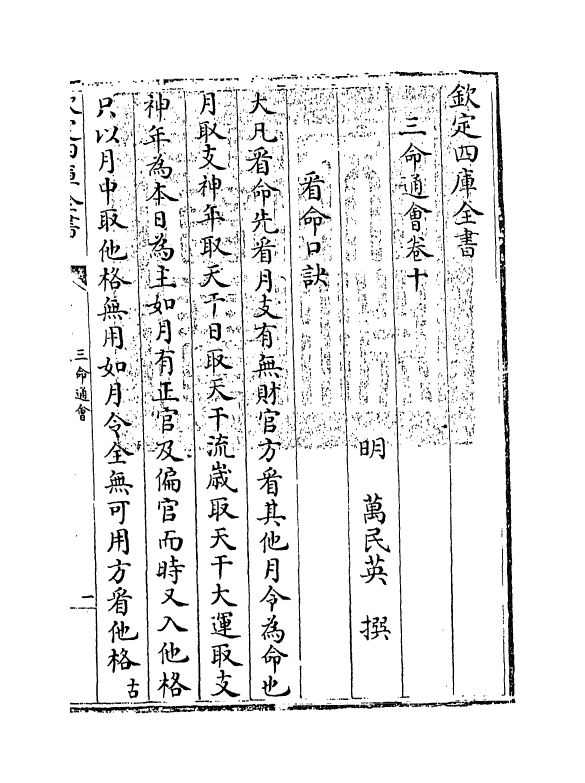 欽定四庫全書
三命通會卷十
明　萬民英　撰
看命口訣
大凡看命先看月支有無財官方看其他月令為命也
月取支神年取天干日取天干流嵗取天干大運取支
神年為本日為主如月有正官及偏官而時又入他格
只以月中取他格無用如月令全無可用方看他格古
三命通會
一